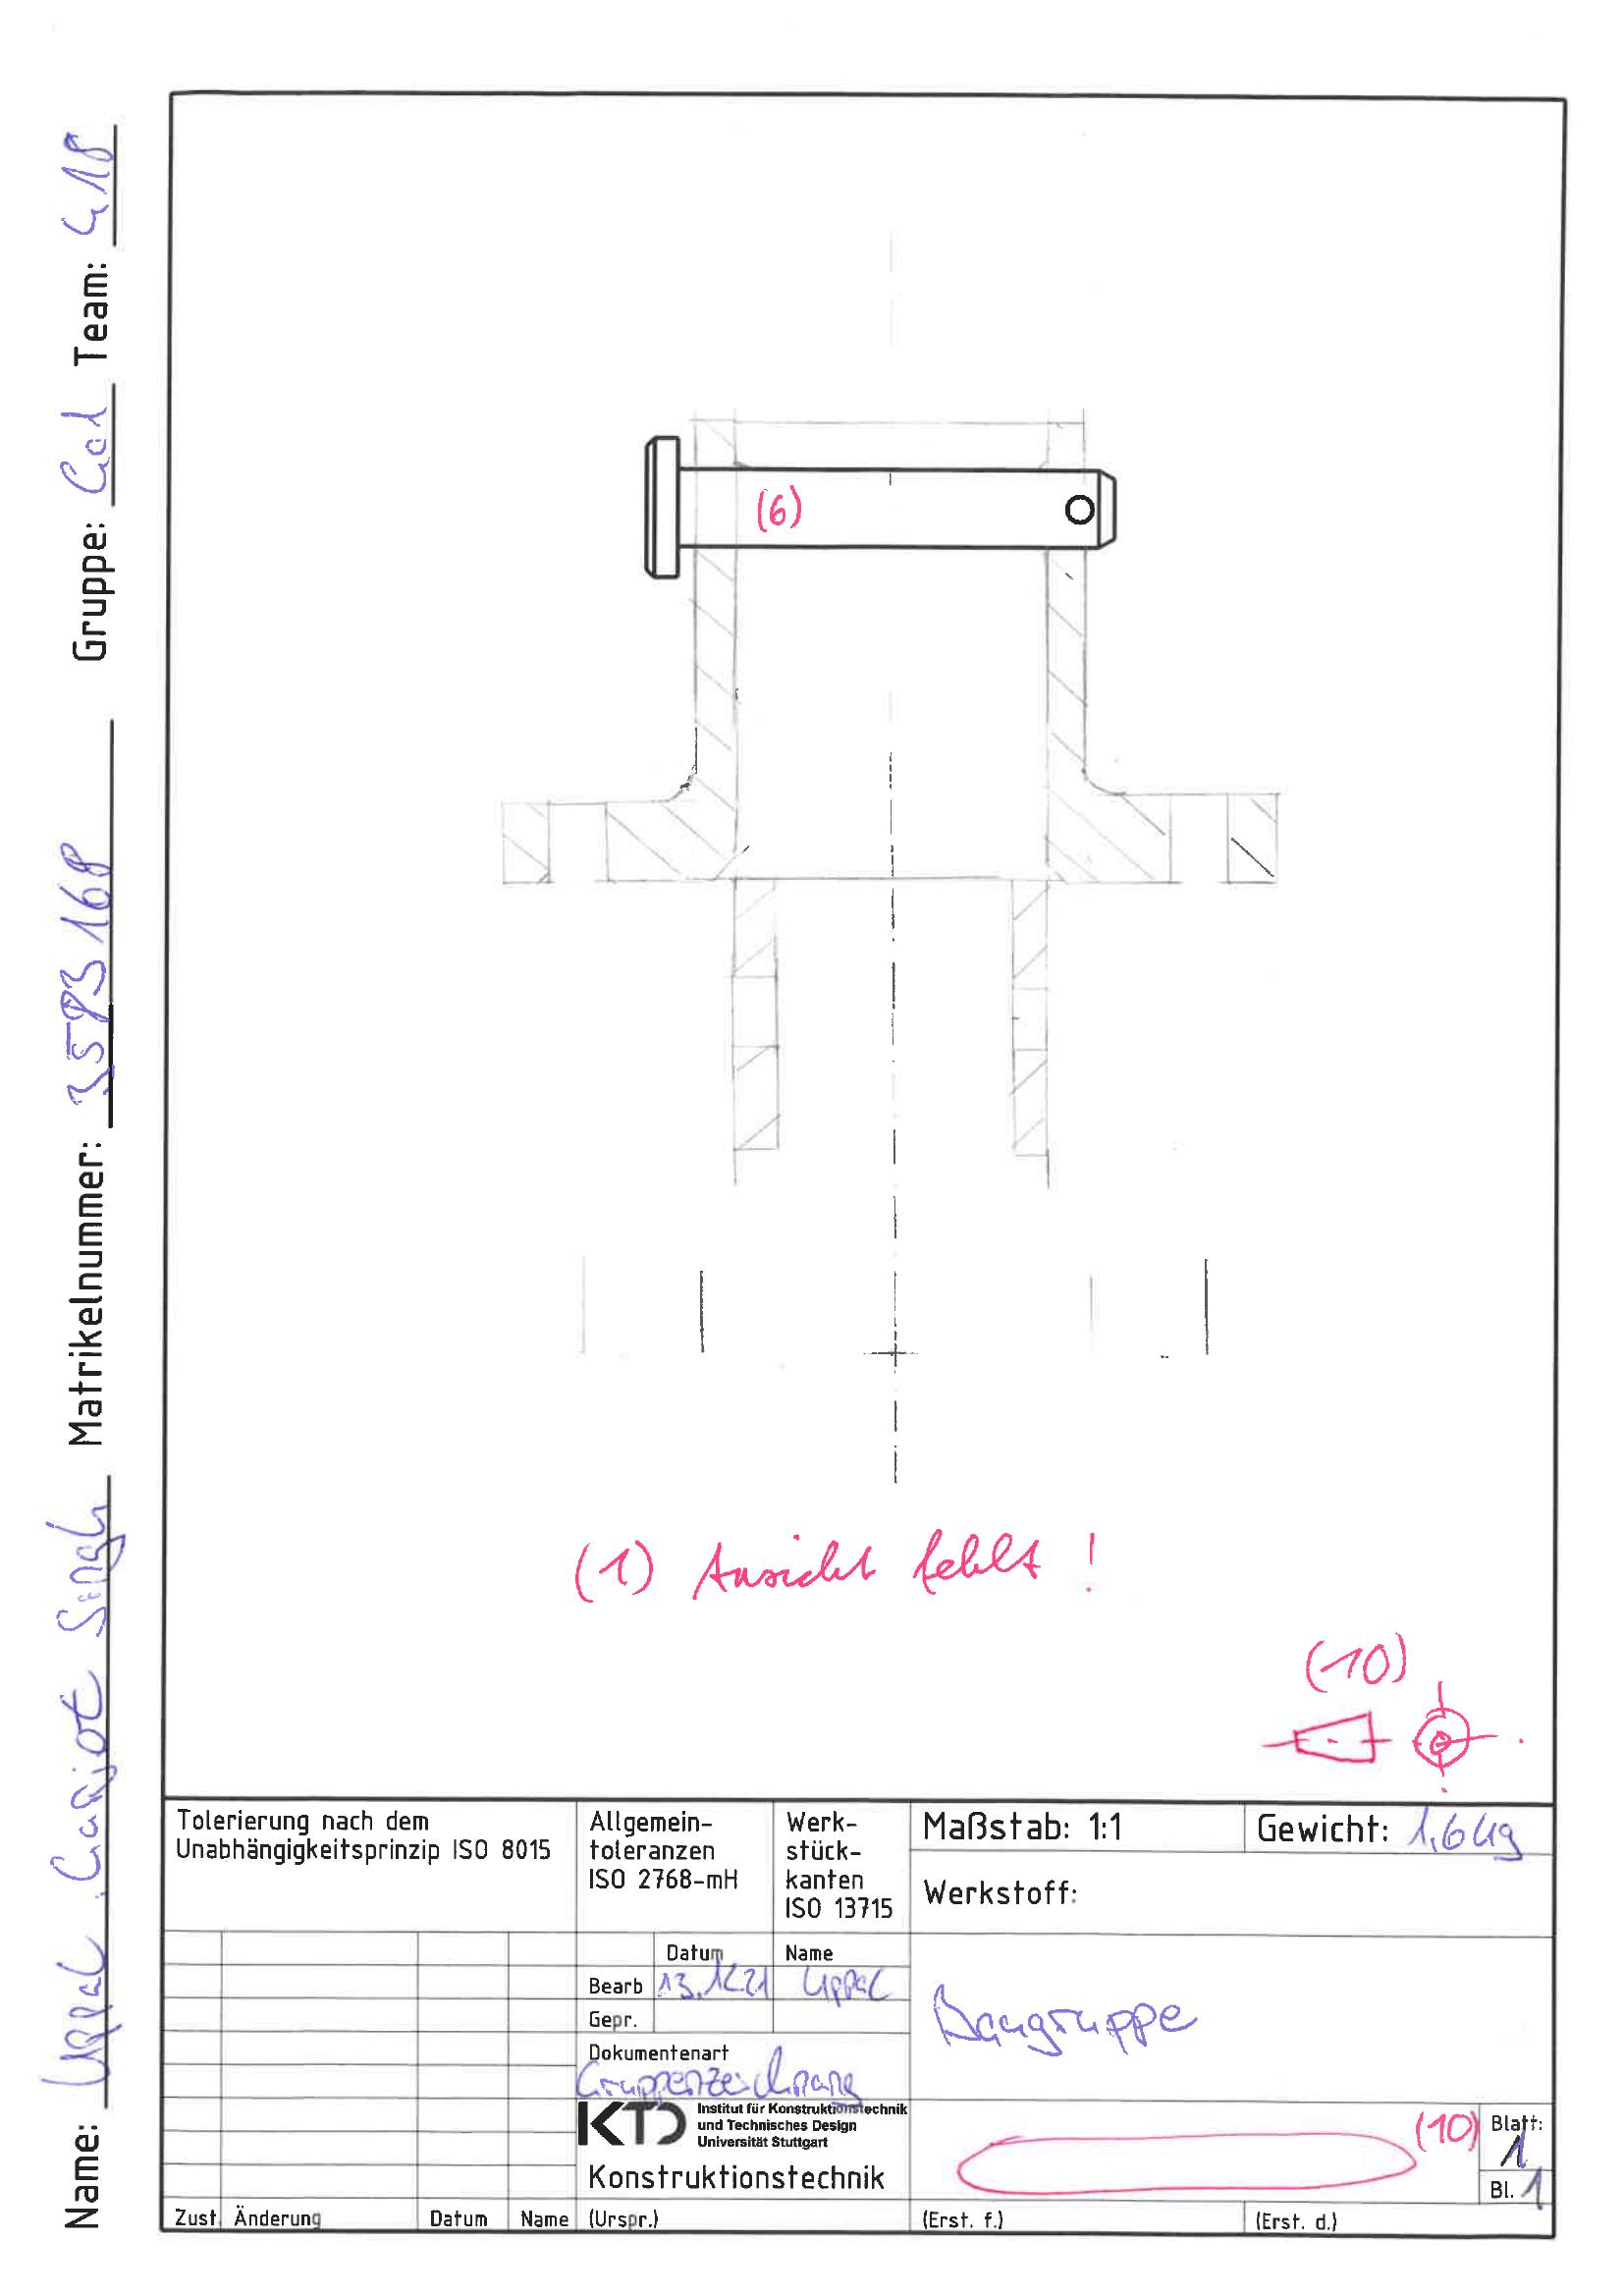 Name: Uppal, Garjot Singh Matrikelnummer: 3593168 Gruppe: Team: 418
(6)
(1) Ansicht fehlt !
(10)
Tolerierung nach dem
Unabhängigkeitsprinzip ISO 8015
Allgemein-
toleranzen
ISO 2768-mH
Werk-
stück-
kanten
ISO 13715
Maßstab: 1:1
Gewicht: 1,6 kg
Werkstoff:
Datum Name
Bearb 13.12.21 Uppal
Gepr.
Dokumentenart
Gruppenzeichnung
Baugruppe
KTD
Institut für Konstruktionstechnik
und Technisches Design
Universität Stuttgart
Konstruktionstechnik
(10)
Blatt:
1
Bl. 1
Zust. Änderung Datum Name (Urspr.) (Erst. f.) (Erst. d.)